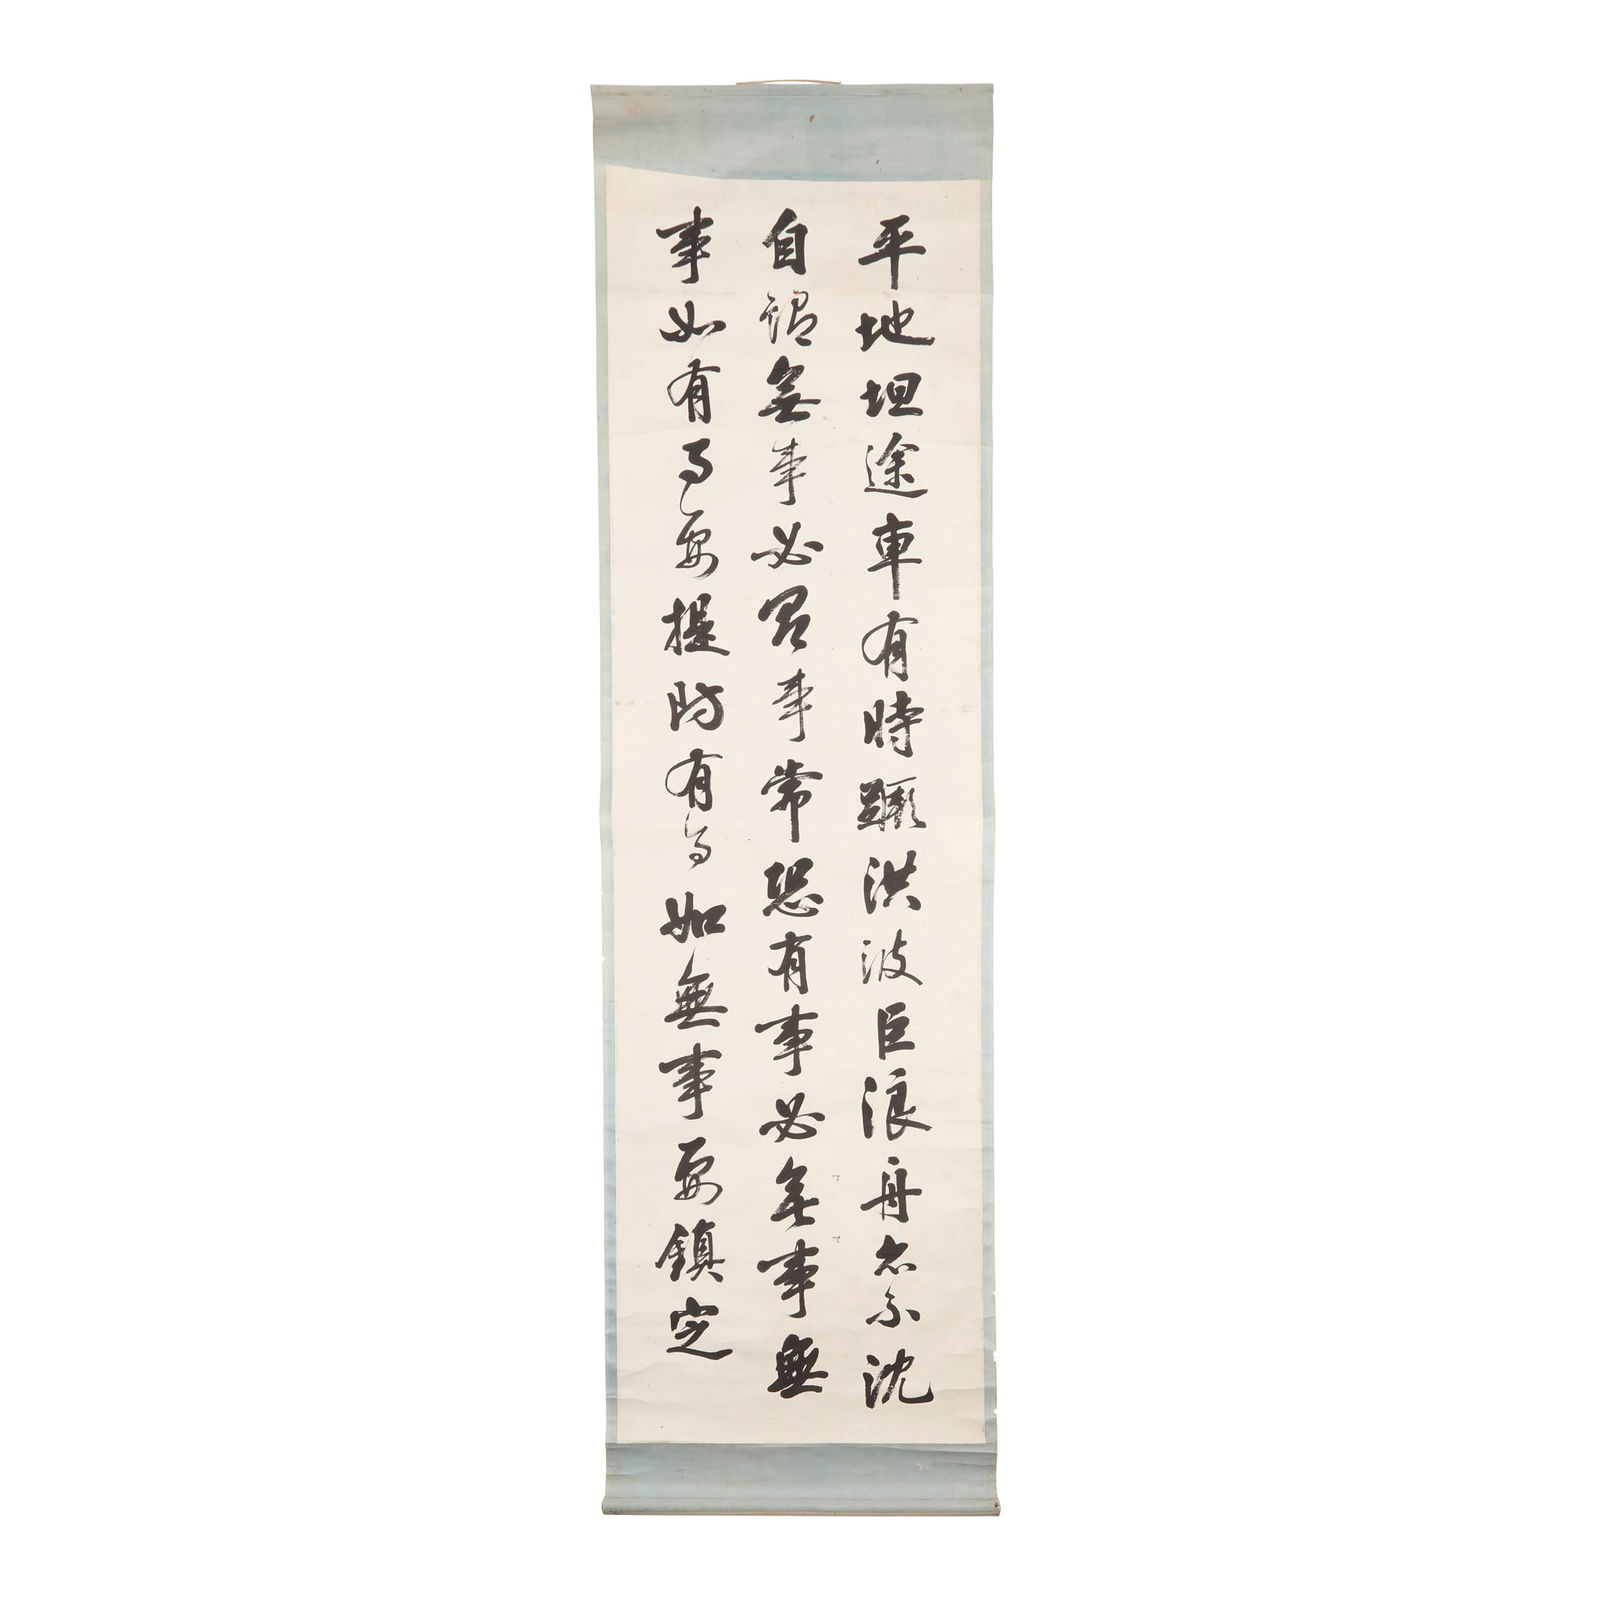 平地坦途車有時蹶洪波巨浪舟亦不沈
自謂無事必召事常恐有事必無事無
事如有事要提防有事如無事要鎮定